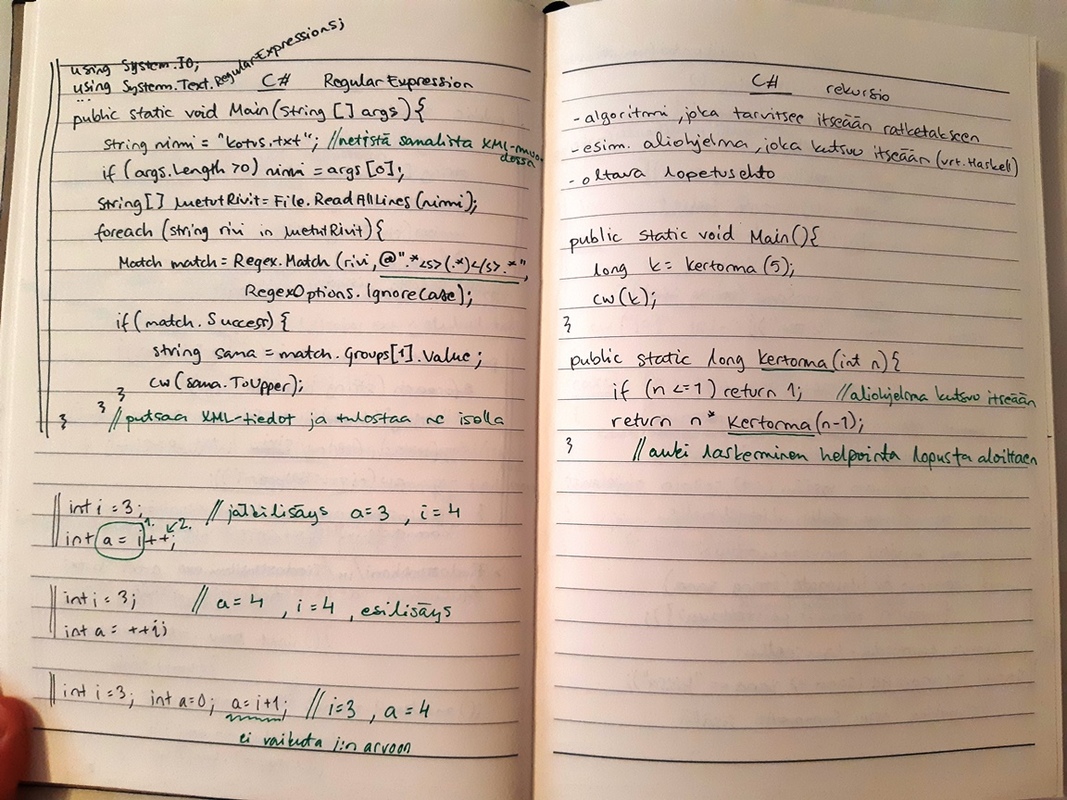 using System.IO;
using System.Text.RegularExpressions;
... C# Regular Expression
public static void Main(string [] args) {
string nimi = "kotus.txt"; //netistä sanalista XML-muodossa
if (args.Length > 0) nimi = args [0];
string[] luetutRivit = File.ReadAllLines (nimi);
foreach (string rivi in luetutRivit) {
Match match = Regex.Match (rivi, @".*<s>(.*)</s>.*",
RegexOptions.IgnoreCase);
if (match.Success) {
string sana = match.Groups[1].Value;
cw (sana.ToUpper);
}
}
} //putsaa XML-tiedot ja tulostaa ne isolla
int i = 3; // jälkilisäys a=3 , i=4
1. 2.
int a = i++;
int i = 3; // a=4 , i=4 , esilisäys
int a = ++i;
int i = 3; int a=0; a=i+1; // i=3 , a=4
ei vaikuta i:n arvoon
C# rekursio
- algoritmi, joka tarvitsee itseään ratketakseen
- esim. aliohjelma, joka kutsuu itseään (vrt. Haskell)
- oltava lopetusehto
public static void Main() {
long k = kertoma (5);
cw (k);
}
public static long kertoma (int n) {
if (n <= 1) return 1; //aliohjelma kutsuu itseään
return n * kertoma (n-1);
} //auki laskeminen helpointa lopusta aloittaen